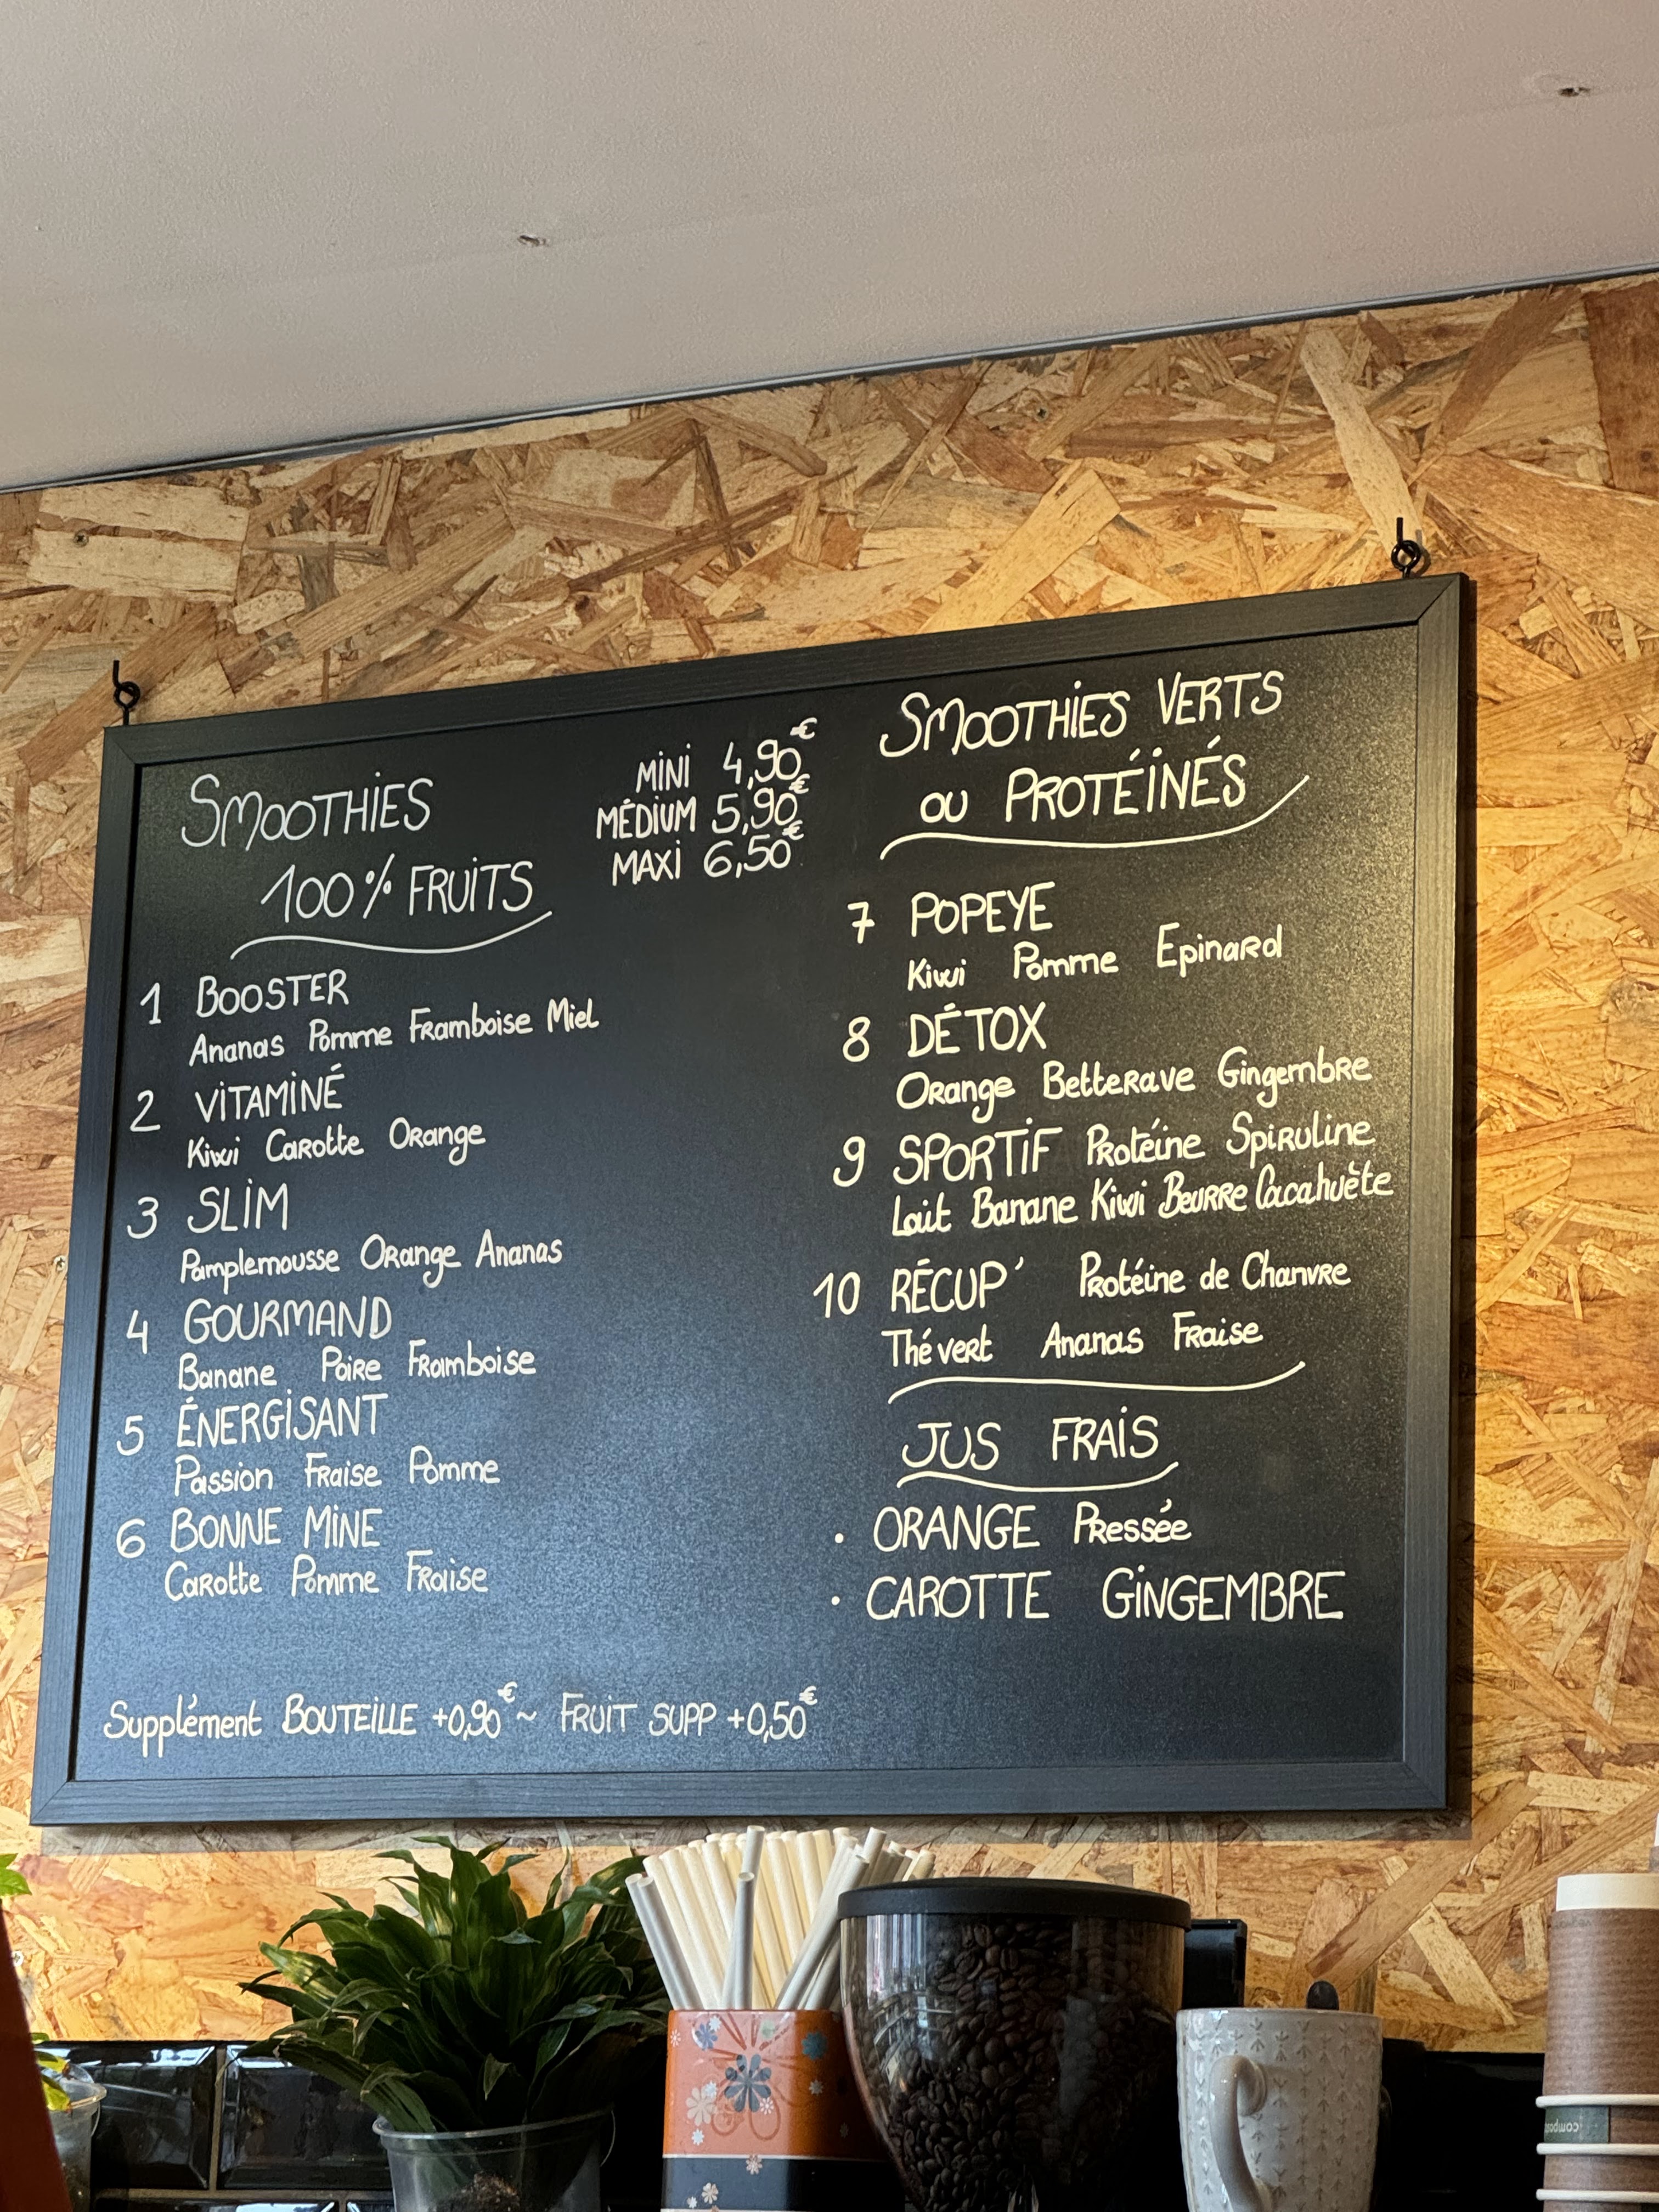 SMOOTHIES
100% FRUITS
MINI 4,90€
MÉDIUM 5,90€
MAXI 6,50€
1 BOOSTER
Ananas Pomme Framboise Miel
2 VITAMINÉ
Kiwi Carotte Orange
3 SLIM
Pamplemousse Orange Ananas
4 GOURMAND
Banane Poire Framboise
5 ÉNERGISANT
Passion Fraise Pomme
6 BONNE MINE
Carotte Pomme Fraise
Supplément BOUTEILLE +0,90€ ~ FRUIT SUPP +0,50€
SMOOTHIES VERTS
OU PROTÉINÉS
7 POPEYE
Kiwi Pomme Epinard
8 DÉTOX
Orange Betterave Gingembre
9 SPORTIF Protéine Spiruline
Lait Banane Kiwi Beurre Cacahuète
10 RÉCUP' Protéine de Chanvre
Thé vert Ananas Fraise
JUS FRAIS
• ORANGE Pressée
• CAROTTE GINGEMBRE